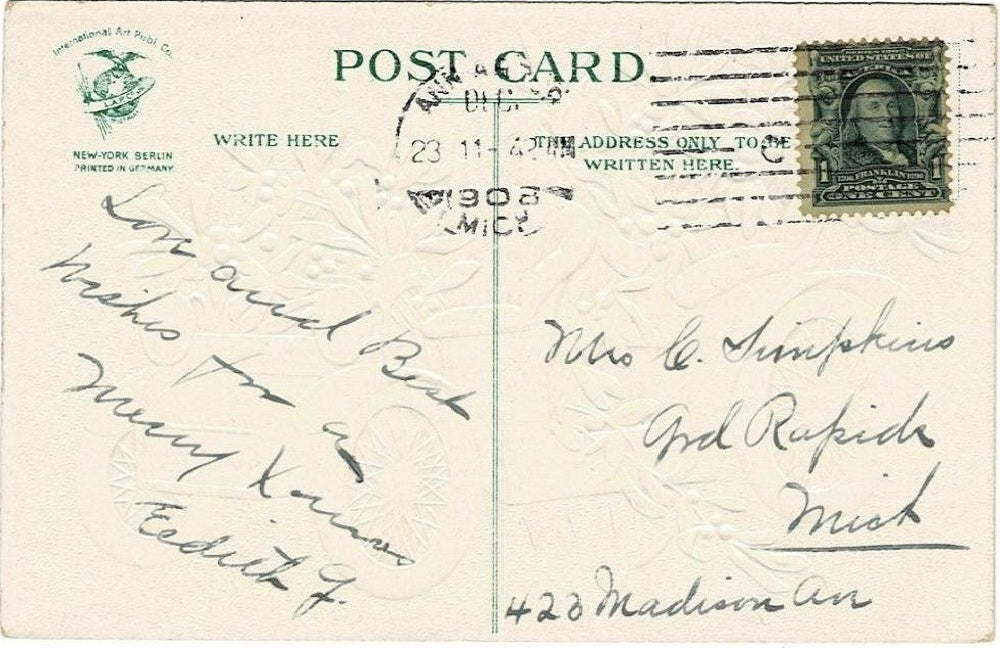 International Art Publ. Co.
NEW-YORK BERLIN
PRINTED IN GERMANY
POST CARD
WRITE HERE
THE ADDRESS ONLY TO BE
WRITTEN HERE.
ANN
DEC
23 11-
1908
MICH
UNITED STATES OF
1 FRANKLIN 1
POSTAGE
ONE CENT
Love and Best
Wishes for a
Merry Xmas
Eedith G.
Mrs C. Simpkins
Grd Rapids
Mich
423 Madison Ave